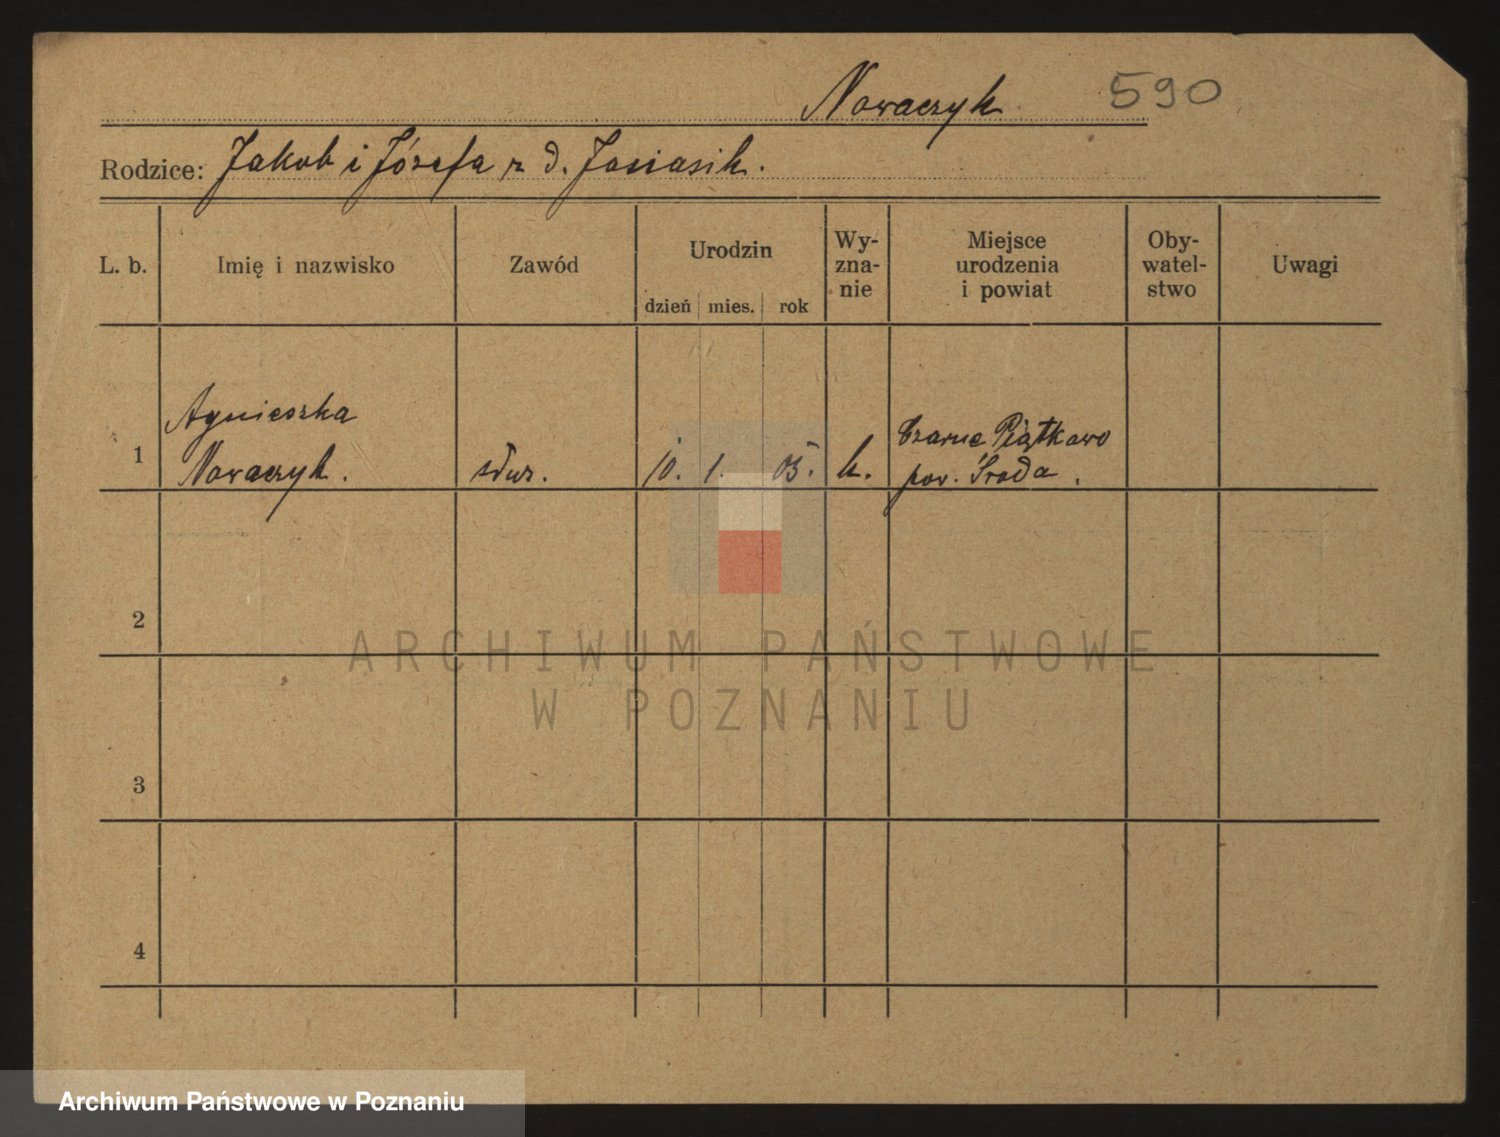 Nowaczyk 590
Rodzice: Jakob i Józefa z d. Jasiasik.
L. b. Imię i nazwisko Zawód Urodzin dzień mies. rok Wy-
zna-
nie Miejsce
urodzenia
i powiat Oby-
watel-
stwo Uwagi
Agnieszka
1 Nowaczyk. służ. 10. 1. 05. k. Czarne Piątkowo
pow. Środa.
2
ARCHIWUM PAŃSTWOWE
W POZNANIU
3
4
Archiwum Państwowe w Poznaniu